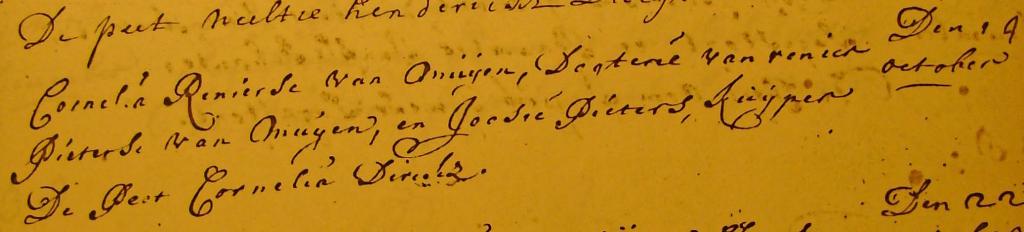 De peet neeltie henderickx
Cornelia Renierse van Muijen, Dogterie van renier Den 19
Pieterse van Muijen, en Joosie Pieters, Kuijper october
De Peet Cornelia Dirckz.
Den 22